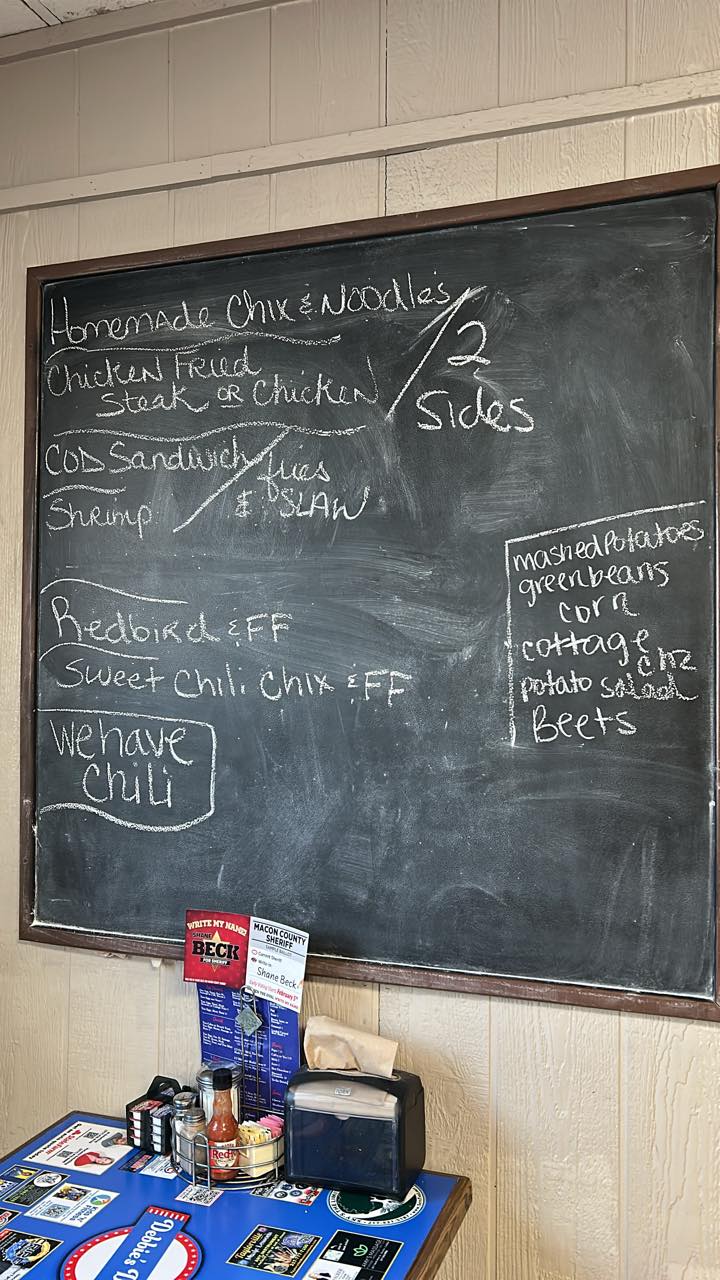 Homemade Chix & Noodles
Chicken Fried
Steak OR Chicken
2
Sides
COD Sandwich
fries
& SLAW
Shrimp
mashed potatoes
green beans
corn
cottage
chz
potato salad
Beets
Redbird & FF
Sweet Chili Chix & FF
We have
Chili
WRITE MY NAME!
SHANE
BECK
FOR SHERIFF
MACON COUNTY
SHERIFF
Shane Beck
Red
TORK
State Farm
Debbie's
Taylorville